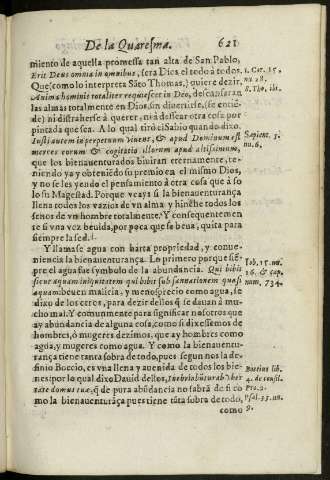 De la Quaresma. 621
miento de aquella promessa tan alta de San Pablo,
Erit Deus omnia in omnibus, sera Dios el todo à todos. 1. Cor. 15.
Que (como lo interpreta Sāto Thomas) quiere dezir, nu. 28.
Anima hominis totaliter requiescet in Deo, descansaran S. Tho. ibi.
las almas totalmente en Dios, sin diuertirse, (se entiē
de) ni distraherse à querer, ni à dessear otra cosa por
pintada que sea. A lo qual tirò el Sabio quando dixo.
Iusti autem in perpetuum viuent, & apud Dominum est Sapient. 5.
merces eorum & cogitatio illorum apud altissimum, nu. 6.
que los bienauenturados biuiran eternamente, te-
niendo ya y obteniẽdo su premio en el mismo Dios,
y no se les yendo el pensamiento a otra cosa que à so
lo su Magestad. Porque veays si la bienauenturança
llena todos los vazios de vn alma y hinche todos los
senos de vn hombre totalmente? Y consequentemen
te si vna vez beuida, por poca que se beua, quita para
siempre la sed.
Y llamase agua con harta propriedad, y conue-
niencia la bienauenturança. Lo primero porque siē-
pre el agua fue symbolo de la abundancia. Qui bibit Iob. 15. nu.
sicut aquam iniquitatem qui bibit subsannationem quasi 16. & cap.
aquam: beuen malicia, y menosprecio como agua, se num. 734.
dixo de los otros, para dezir dellos q̃ se dauan à mu-
cho mal. Y comunmente para significar nosotros que
ay abundancia de alguna cosa, como si dixessemos de
hombres, ò mugeres dezimos, que ay hombres como
agua, y mugeres como agua. Y como la bienauentu-
rança tiene tanta sobra de todo, pues segun nos la de-
finio Boccio, es vna llena y auenida de todos los bie- Boetius lib.
nes: por lo qual dixo Dauid dellos, Inebriabũtur ab vber 4. de consil.
tate domus tuæ, q̃ de pura abũdancia no sabrā de si co Pro. 2.
mo la bienauenturāça pues tiene tāta sobra de todo, Psal. 35. nu.
como 9.